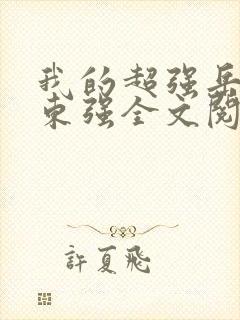 我的超强兵
东强全文阅
許夏飛